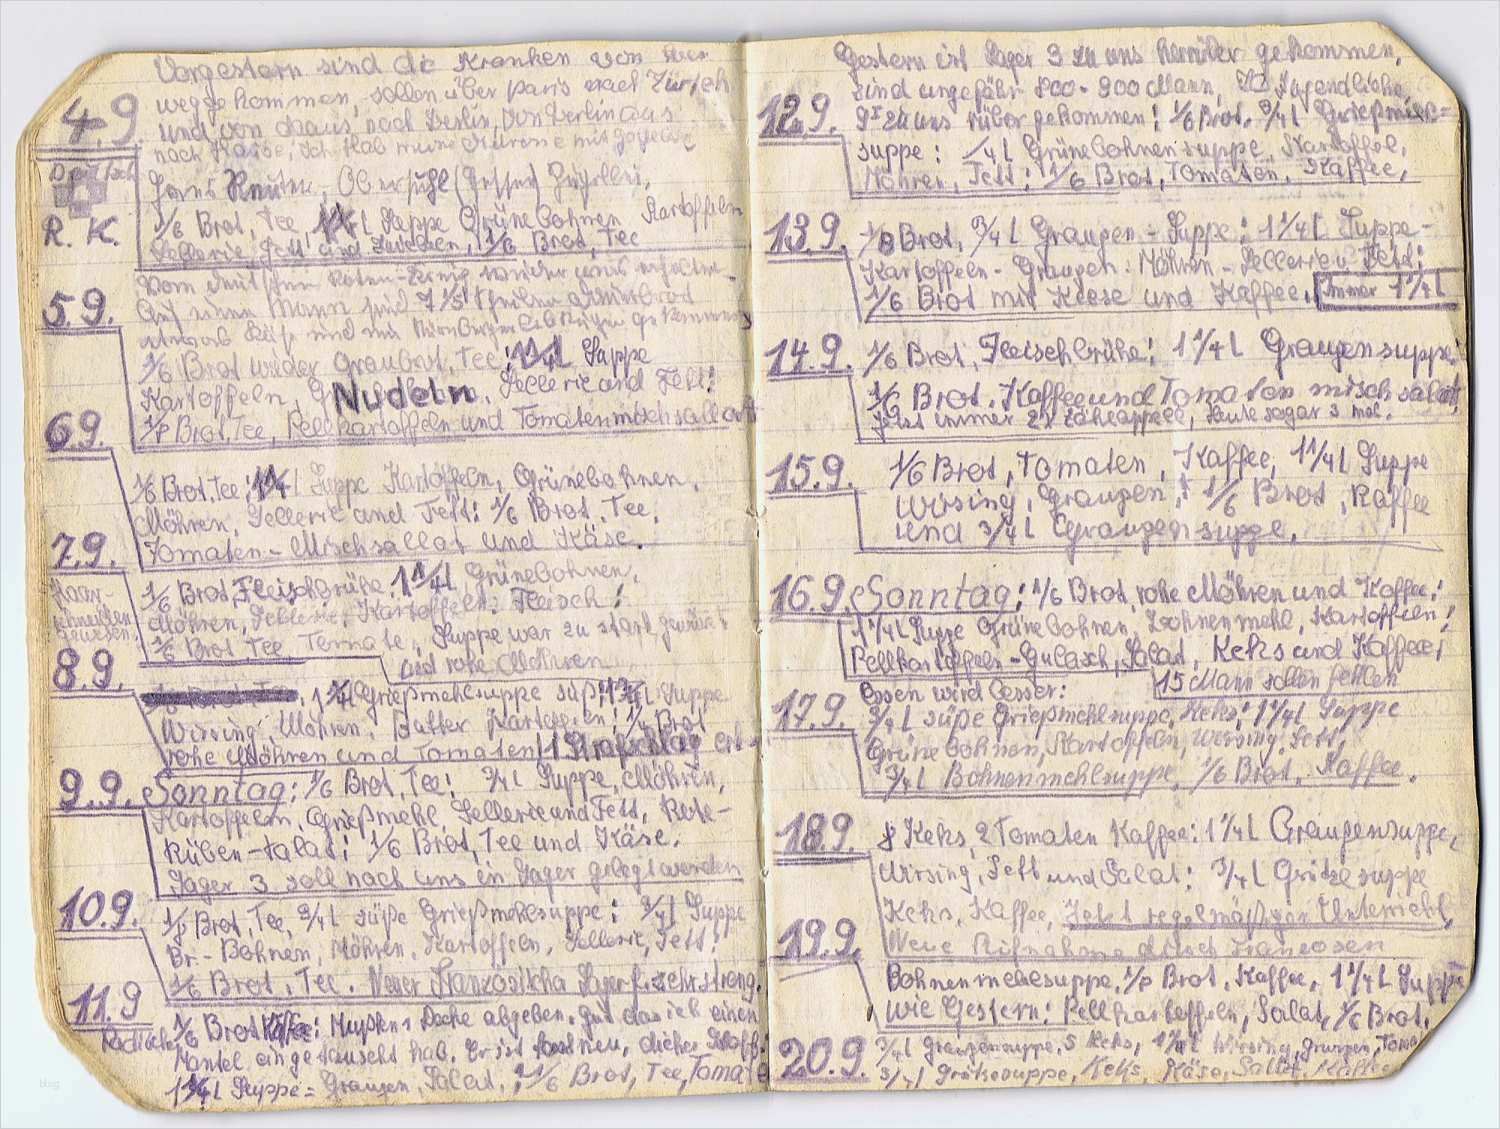 Vorgestern sind die Kranken von hier
weggekommen, sollen über Paris nach Zürich
4.9
und von da aus nach Berlin, von Berlin aus
nach Hause, ich hab meine Adresse mit gegeben
Deutsch
R. K.
1/6 Brot, Tee, 1 1/4 l Suppe Grüne Bohnen Kartoffeln
Sellerie Fett und, 1/6 Brot, Tee
Vom deutschen Roten-Kreuz wieder was erhalten
5.9.
Auf einen Mann sind 7
etwas Käse und ein
1/6 Brot wieder Graubrot, Tee: 1 1/4 l Suppe
Kartoffeln, Nudeln, Sellerie und Fett!
6.9.
1/6 Brot, Tee, Pellkartoffeln und Tomatenmischsallat
1/6 Brot, Tee: 1 1/4 l Suppe Kartoffeln, Grünebohnen,
Möhren, Sellerie und Fett: 1/6 Brot, Tee,
7.9.
Tomaten-Mischsallat und Käse.
Haar-
schneiden
gewesen.
1/6 Brot, Fleischbrühe. 1 1/4 l Grünebohnen,
Möhren, Sellerie, Kartoffeln, Fleisch!
1/6 Brot Tee Tomate, Suppe war zu stark gewürzt
8.9.
und rohe Möhren
1 3/4 l Grießmehlsuppe süß; 1 1/4 l Suppe
Wirsing, Möhren, Butter Kartoffeln; 1/6 Brot
rohe Möhren und Tomaten
9.9.
Sonntag: 1/6 Brot, Tee; 3/4 l Suppe, Möhren,
Kartoffeln, Grießmehl, Sellerie und Fett, Rote-
Rüben-salat; 1/6 Brot, Tee und Käse.
Lager 3 soll nach uns in Lager gelegt werden
10.9.
Brot, Tee, 3/4 l süße Grießmehlsuppe: 3/4 l Suppe
Br.- Bohnen, Möhren, Kartoffeln, Sellerie, Fett!
1/6 Brot, Tee. Neuer Französischa Lagerf. sehr strong.
11.9
1/6 Brot Kaffee: Mußten 1 Decke abgeben, gut das ich einen
Mantel eingetauscht hab. Er ist fast neu, dicker Stoff:
1 1/4 l Suppe = Graupen, Salat, ; 1/6 Brot, Tee, Tomate
Gestern ist Lager 3 zu uns herüber gekommen,
sind ungefähr 800-900 Mann, Jugendliche
12.9.
zu uns rüber gekommen! 1/6 Brot, 3/4 l Grießmehl-
suppe: 1/4 l Grünebohnensuppe, Kartoffel,
Möhren, Fett: 1/6 Brot, Tomaten, Kaffee,
13.9.
1/6 Brot, 3/4 l Graupen-Suppe; 1 1/4 l Suppe-
Kartoffeln-Graupen: Möhren-Sellerie u. Fett:
1/6 Brot mit Keese und Kaffee, Immer 1 1/4 l
14.9.
1/6 Brot, Fleischbrühe! 1 1/4 l Graupensuppe;
1/6 Brot, Kaffee und Tomaten mischsalat,
Jetzt immer 2x Zählappelle, heute sogar 3 mal.
15.9.
1/6 Brot, Tomaten, Kaffee, 1 1/4 l Suppe
Wirsing, Graupen,: 1/6 Brot, Kaffee
und 3/4 l Graupensuppe.
16.9.
Sonntag: 1/6 Brot, rohe Möhren und Kaffee;
1 1/4 l Suppe Grünebohnen, Bohnenmehl, Kartoffeln!
Pellkartoffeln-Gulasch, Salat, Keks und Kaffee;
Essen wird besser: 15 Mann sollen fehlen
17.9.
3/4 l süße Grießmehlsuppe, Keks; 1 1/4 l Suppe
Grüne bohnen, Kartoffeln, Wirsing, Fett,
3/4 l Bohnenmehlsuppe, 1/6 Brot, Kaffee.
18.9.
8 Keks, 2 Tomaten Kaffee: 1 1/4 l Graupensuppe,
Wirsing, Fett und Salat: 3/4 l Grützesuppe
Keks, Kaffee, Jetzt regelmäßiger Unterricht,
19.9.
Neue Aufnahme durch Franzosen
Bohnenmehlsuppe, Brot, Kaffee, 1 1/4 l Suppe
wie Gestern: Pellkartoffeln, Salat, 1/6 Brot,
20.9.
3/4 l Graupensuppe, 5 Keks, 1 1/4 l Wirsing, Graupen, Toma
3/4 l Grützesuppe, Keks, Käse, Salat, Kaffee